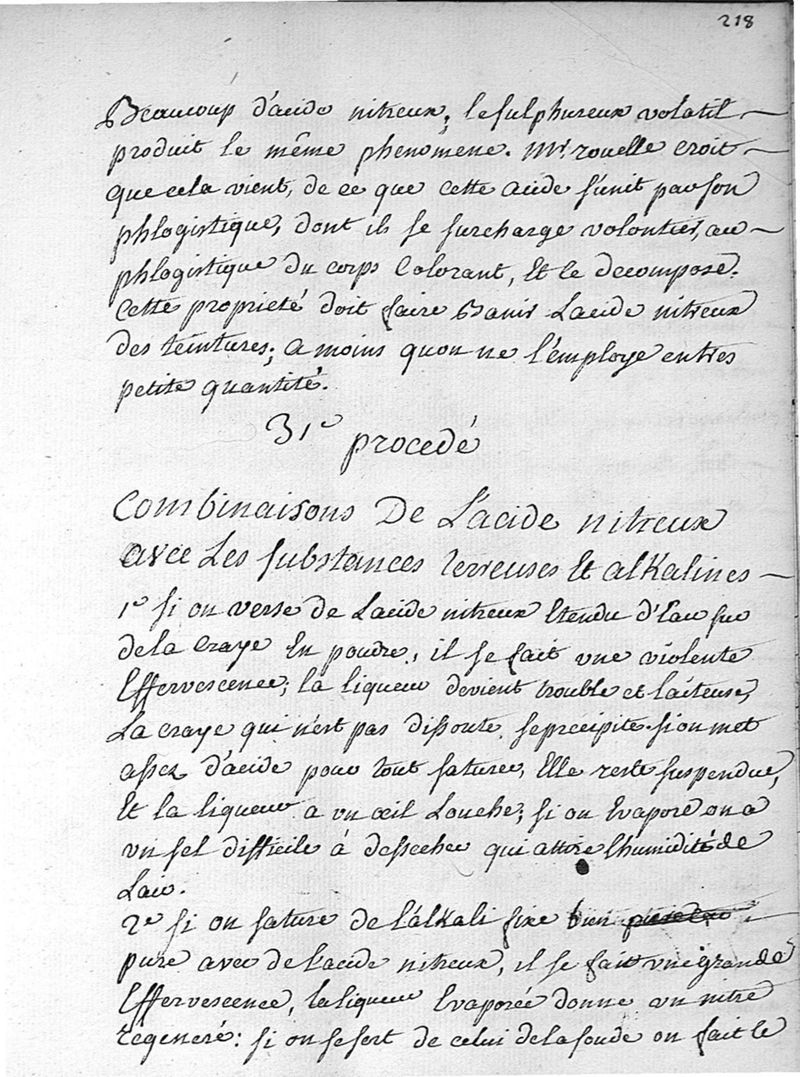 218
Beaucoup d'acide nitreux; le sulphureux volatil
produit le même phenomène. Mr. rouelle croit
que cela vient, de ce que cette acide s'unit par son
phlogistique, dont ils se surcharge volontier, au
phlogistique du corps Colorant, Et le decompose.
Cette proprieté doit faire Banir L'acide nitreux
des teintures; a moins quon ne l'employe entres
petite quantité.
31e procedé
Combinaisons De L'acide nitreux
avec Les substances Terreuses Et alKalines
1e si on verse de Lacide nitreux Etendu d'Eau sur
dela Craye En poudre, il se fait une violente
Effervescence; la liqueur devient trouble et laiteuse,
La craye qui n'est pas dissoute, se precipite. si on met
assez d'acide pour tout saturer, Elle reste suspendue,
Et la liqueur a un œil Louche; si on Evapore on a
un sel difficile à dessecher qui attire l'humidité de
L'air.
2e si on sature de l'alkali fixe bien
pure avec de l'acide nitreux, il se fait une grande
Effervescence, la liqueur Evaporée donne un nitre
régeneré: si on se sert de celui de la soude on fait le